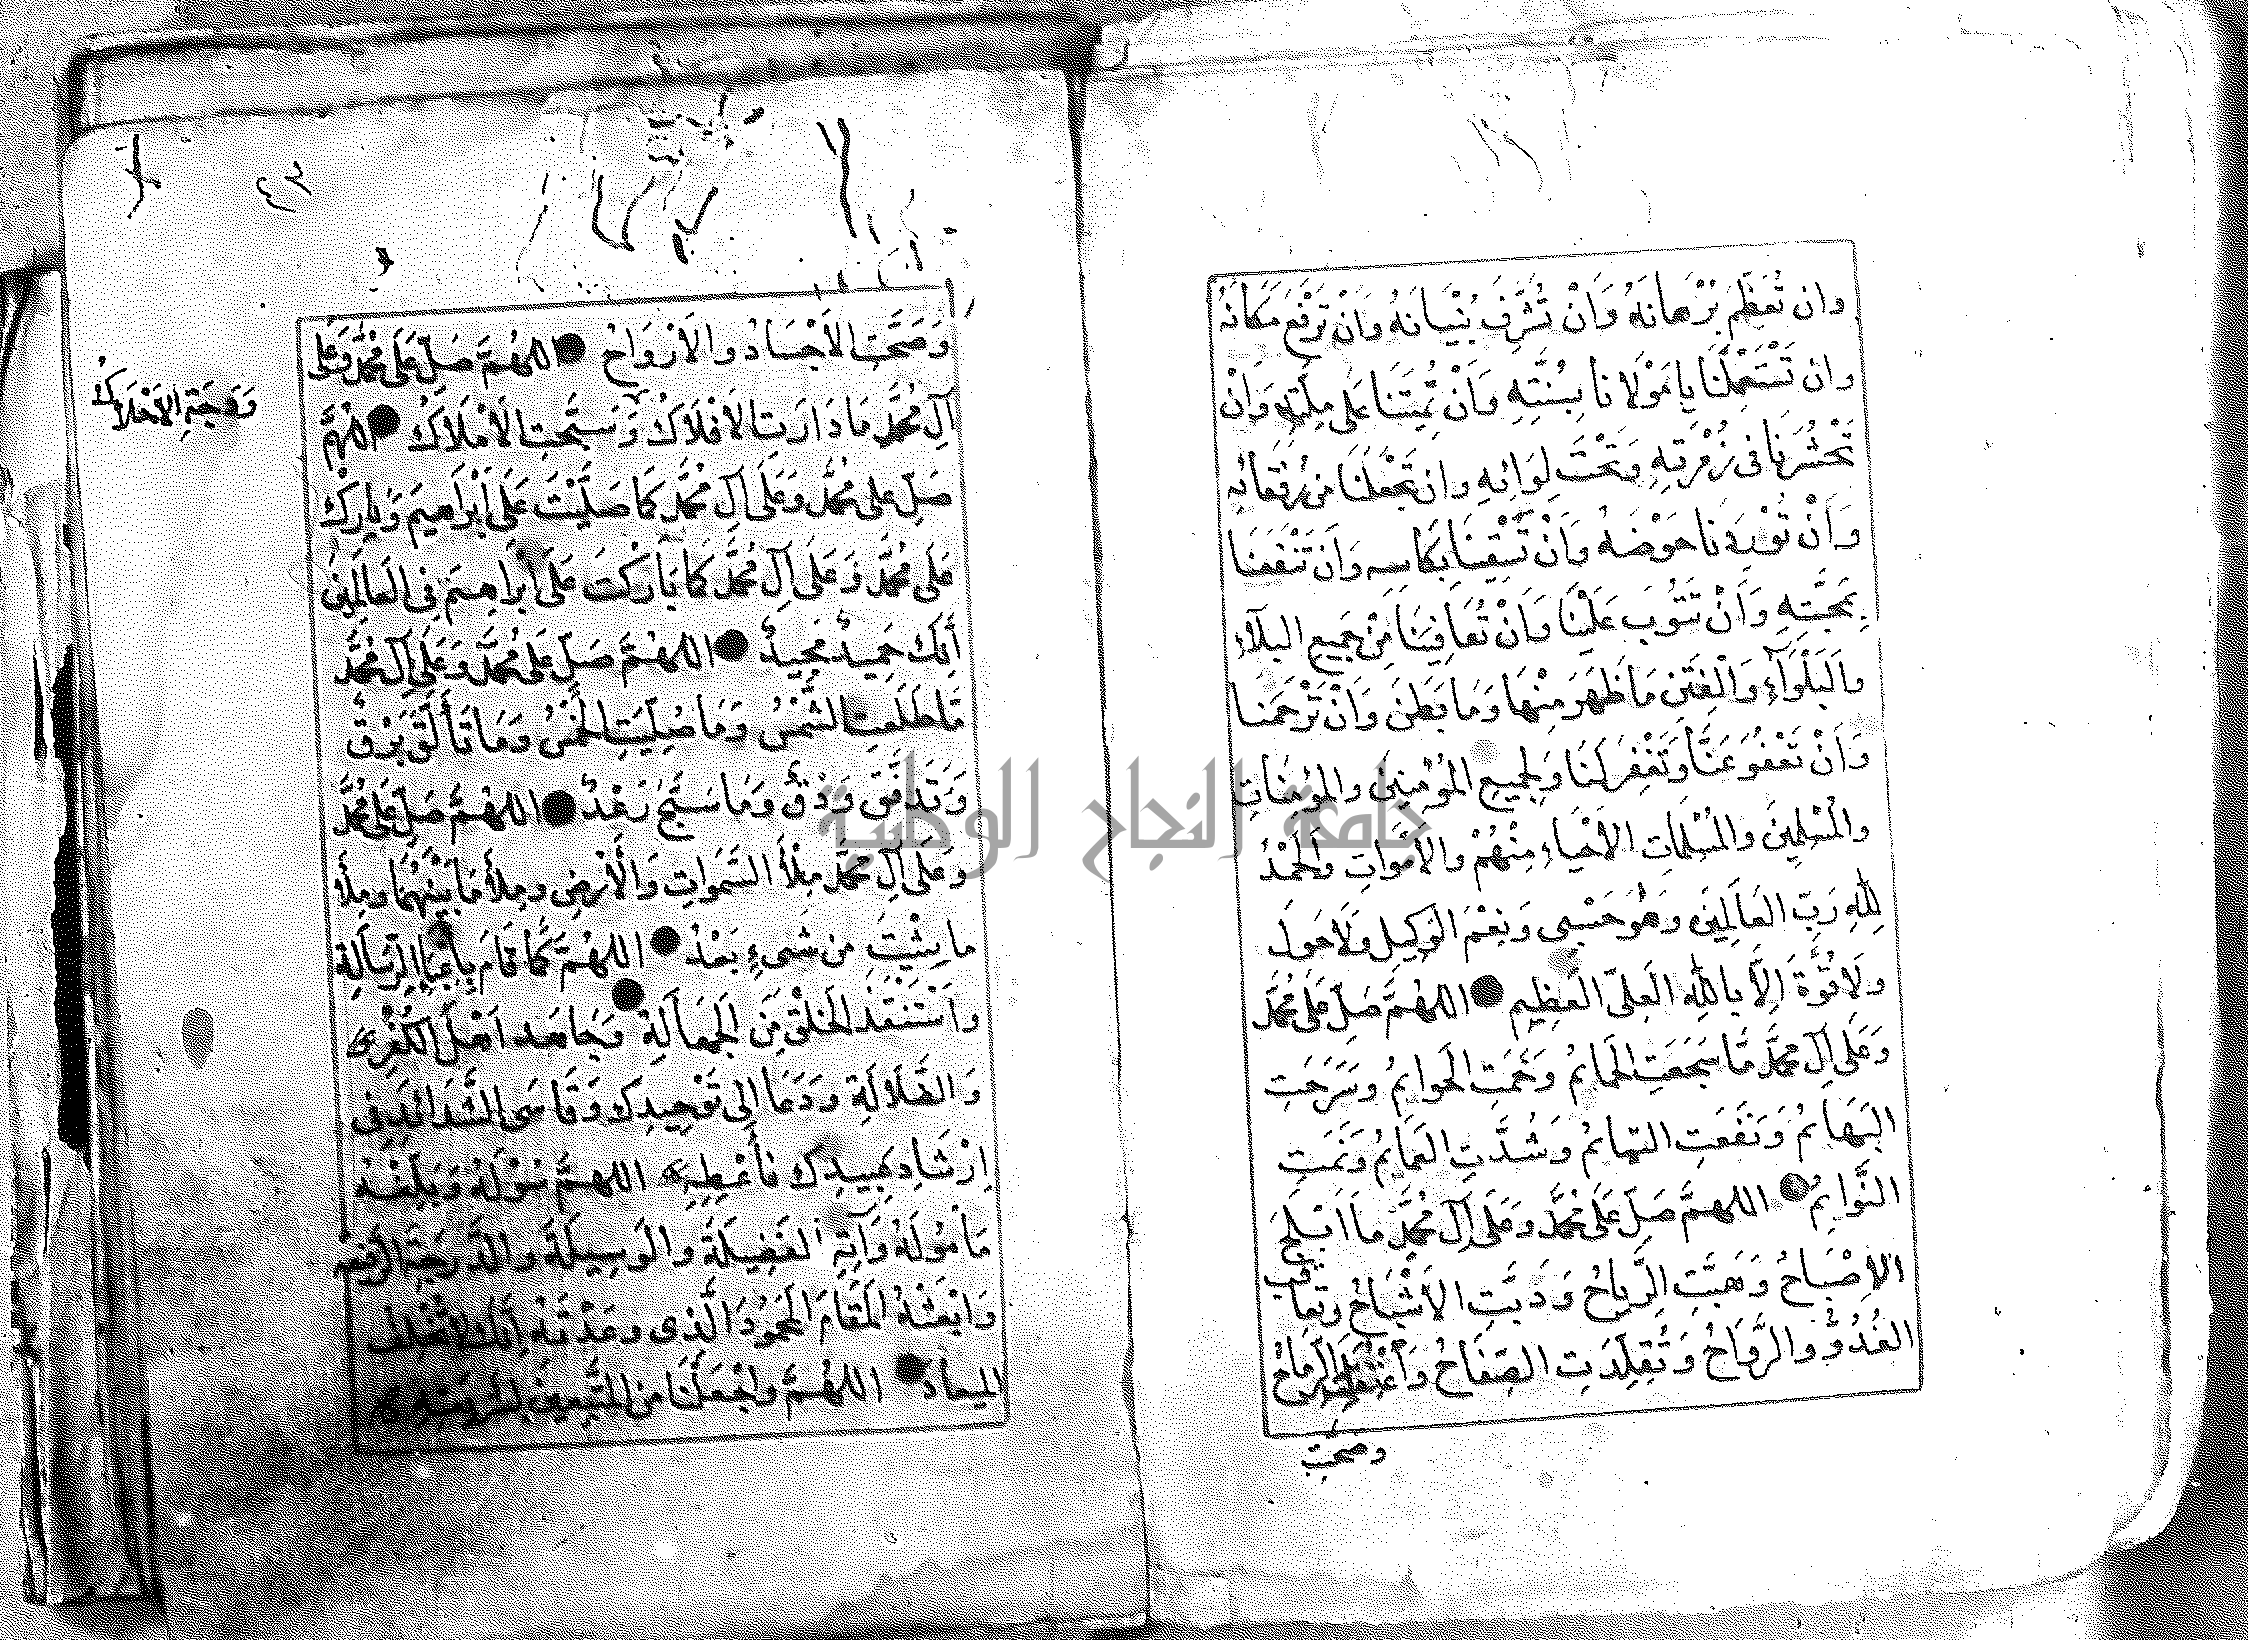 وان تُعَظِّمَ بُرْهانَهُ وَاَنْ تُشَرِّفَ بُنْيَانَهُ وَاَنْ تَرْفَعَ مَكَانَهُ
وان تَسْتَعْمِلَنَا يا مَوْلَانا بِسُنَّتِهِ وَاَنْ تُمِيتَنَا عَلى مِلَّتِهِ وَاَنْ
تَحْشُرَنَا فى زُمْرَتِهِ وَتَحْتَ لِوَائِهِ وان تَجْعَلَنَا مِنْ رُفَقَائِهِ
وَاَنْ تُوْرِدَنَا حَوْضَهُ وَاَنْ تَسْقِيَنَا بِكَاسِهِ وَاَن تَنْفَعَنَا
بِمَحَبَّتِهِ وَاَنْ تَتُوبَ عَلَيْنَا وَاَنْ تُعَافِيَنَا مِنْ جَمِيعِ البَلَاءِ
وَالبَلْوَآءِ وَالْفِتَنِ مَا ظَهَرَ مِنْهَا وَمَا بَطَنَ وَاَنْ تَرْحَمَنَا
وَاَنْ تَعْفُوَ عَنَّا وَتَغْفِرَ لَنَا وَلِجَمِيعِ المُؤْمِنِينَ والمُؤْمِنَاتِ
والْمُسْلِمِينَ والمُسْلِمَاتِ الاَحْيَاءِ مِنْهُمْ والاَمْوَاتِ والحَمْدُ
لِلّهِ رَبِّ العَالَمِينَ وَهُوَ حَسْبِى وَنِعْمَ الوَكِيل وَلَا حَولَ
ولَا قُوَّةَ اِلَّا بِاللهِ العَلِىّ العَظِيمِ اللهُمَّ صَلِّ عَلَى مُحَمَّد
وَعَلَى آلِ مُحَمَّد مَّا سَجَعَتِ الحَمَائِمُ وَحَمَتِ الحَوايِمُ وسَرَحَتِ
البَهَائِمُ وَنَفَعَتِ التمائمُ وَشُدَّتِ العَمَائِمُ وَنَمَتِ
النَّوَايِمُ اللهمَّ صَلِّ عَلَى مُحَمَّد وعَلَى آلِ مُحَمَّدٍ ما اَبْلَجَ
الاِصْبَاحُ وَهَبَّتِ الرِّيَاحُ وَدَبَّتِ الاَشْبَاحُ وتعاقب
الغُدُوُّ والرَّوَاحُ وَتُقُلِّدَتِ الصِّفَاحُ وَاعْتُقِلَتِ الرِّمَاحُ
وصحّتِ
٤٣
وَصَحَّتِ الاَجْسَادُ والاَرْوَاحُ اللهُمَّ صَلِّ عَلَى مُحَمَّدٍ وَعَلى
آلِ مُحَمَّدٍ مَا دَارَتِ الاَفْلَاكُ وَسَبَّحَتِ الاَمْلَاكُ اللهُمَّ
وَدَجَتِ الاَحْلَاكُ
صَلِّ عَلى مُحَمَّد وَعَلَى آلِ مُحَمَّد كَمَا صَلَّيْتَ عَلَى اِبْرَاهِيمَ وَبَارِكْ
عَلَى مُحَمَّد وَعَلَى آلِ مُحَمَّد كَمَا بَارَكْتَ عَلَى ابراهِيمَ فى العَالَمِينَ
اِنَّكَ حَمِيدٌ مَجِيدٌ اللهُمَّ صَلِّ عَلَى مُحَمَّد وَعَلَى آلِ مُحَمَّد
مَّا طَلَعَتِ الشَّمْسُ وَمَا صُلِّيَتِ الخَمْسُ وَمَا تَأَلَّقَ بَرْقٌ
وَتَدَفَّقَ وَدْقٌ وَمَا سَبَّحَ رَعْدٌ اللهُمَّ صَلِّ عَلَى مُحَمَّد
وعَلَى آلِ مُحَمَّد مِلْأَ السَّمَواتِ وَالْأَرْضِ ومِلأَ مَا بَيْنَهُمَا ومِلْأَ
ما شِئْتَ من شَىءٍ بَعْدُ اللهُمَّ كَمَا قَامَ بِاَعْبَاءِ الرِّسَالَةِ
واَسْتَنْقَذَ الخَلْقَ مِنَ الجَهَالَةِ وَجَاهد اَهْلَ الكُفْرِ
وَالضَّلَالَةِ وَدَعَا اِلى تَوْحِيدِك وَقَاسَى الشَّدَائِدَ فِى
اِرْشَادِ عَبِيدِك فَأَعْطِهِ اللهمَّ سُؤْلَهُ وَبَلِّغْهُ
مَأْمُولَهُ وَآتِهِ الفَضِيلَةَ والوَسِيلَةَ والدَّرَجَةَ الرَّفِيعه
وَابْعَثْهُ المَقَامَ المَحْمُودَ الَّذِى وعَدْتَهُ اِنَّكَ لَا تُخْلِفُ
الميعاد اللهُمَّ واجْعَلْنَا مِنَ المُتَّبِعِينَ لِشَرِيعَتِهِ
جامعة النجاح الوطنية